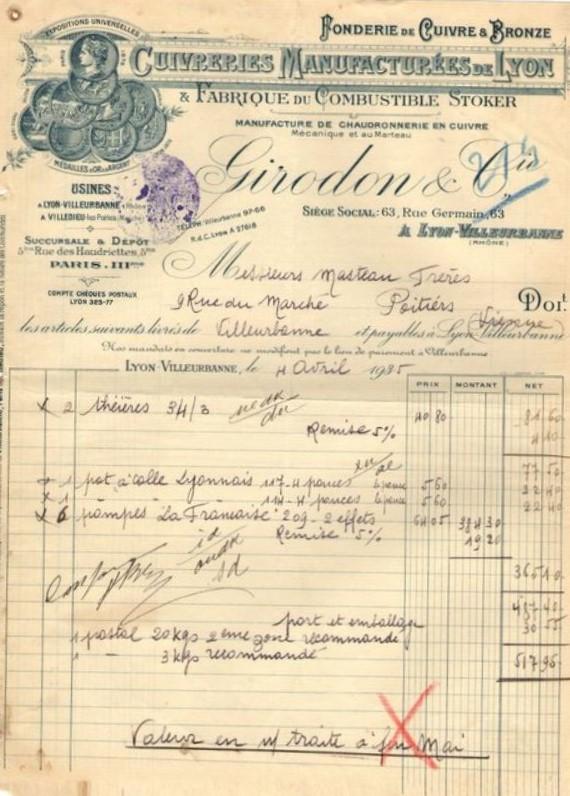 EXPOSITIONS UNIVERSELLES
MÉDAILLES D'OR & D'ARGENT
FONDERIE DE CUIVRE & BRONZE
CUIVRERIES MANUFACTURÉES DE LYON
& FABRIQUE DU COMBUSTIBLE STOKER
MANUFACTURE DE CHAUDRONNERIE EN CUIVRE
Mécanique et au Marteau
Girodon & Cie
USINES:
A LYON-VILLEURBANNE (Rhône)
A VILLEDIEU-les-Poêles (Manche)
TÉLÉPH. Villeurbanne 97-66
R.d.C. Lyon A 27618
SIÈGE SOCIAL: 63, Rue Germain, 63
A LYON-VILLEURBANNE
(RHÔNE)
SUCCURSALE & DÉPÔT
5bis Rue des Haudriettes, 5bis
PARIS. IIIme
COMPTE CHÈQUES POSTAUX
LYON 325-77
Messieurs Masteau Frères
9 Rue du Marché Poitiers Doit
(Vienne)
les articles suivants livrés de Villeurbanne et payables à Lyon-Villeurbanne
Nos mandats en couverture ne modifient pas le lieu de paiement à Villeurbanne
LYON-VILLEURBANNE, le 4 Avril 1935
PRIX MONTANT NET
x 2 théières 34/3 40 80 81 60
Remise 5% 4 10
77 50
x 1 pot à colle Lyonnais 117-4 pouces le pouce 5 60 22 40
x 1 114-4 pouces le pouce 5 60 22 40
x 6 pompes "La Française" 209-2 effets 64 05 384 30
Remise 5% 19 20
365 10
487 40
port et emballage 30 55
1 postal 20kgs 2ème zone recommandé
1 - 3kgs recommandé 517 95
Valeur en n/ traite à fin Mai